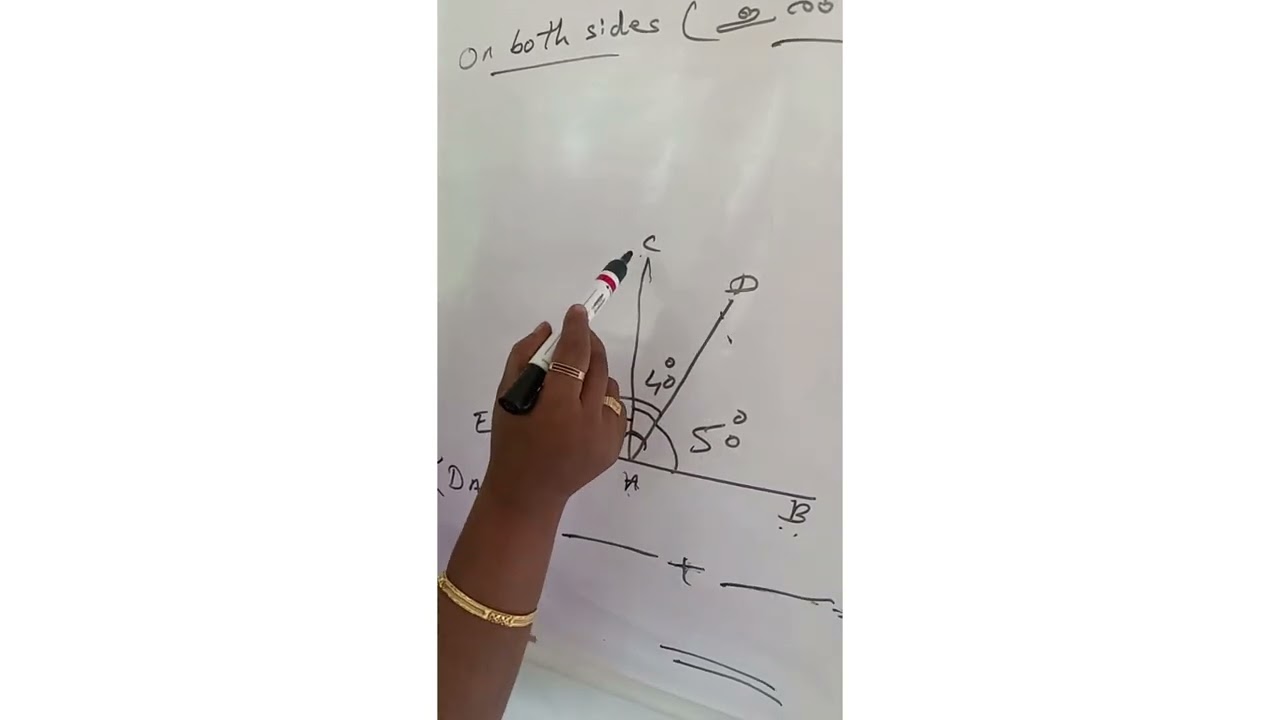 On both sides (
C
D
40°
E
50°
(DA
A
B
+
=